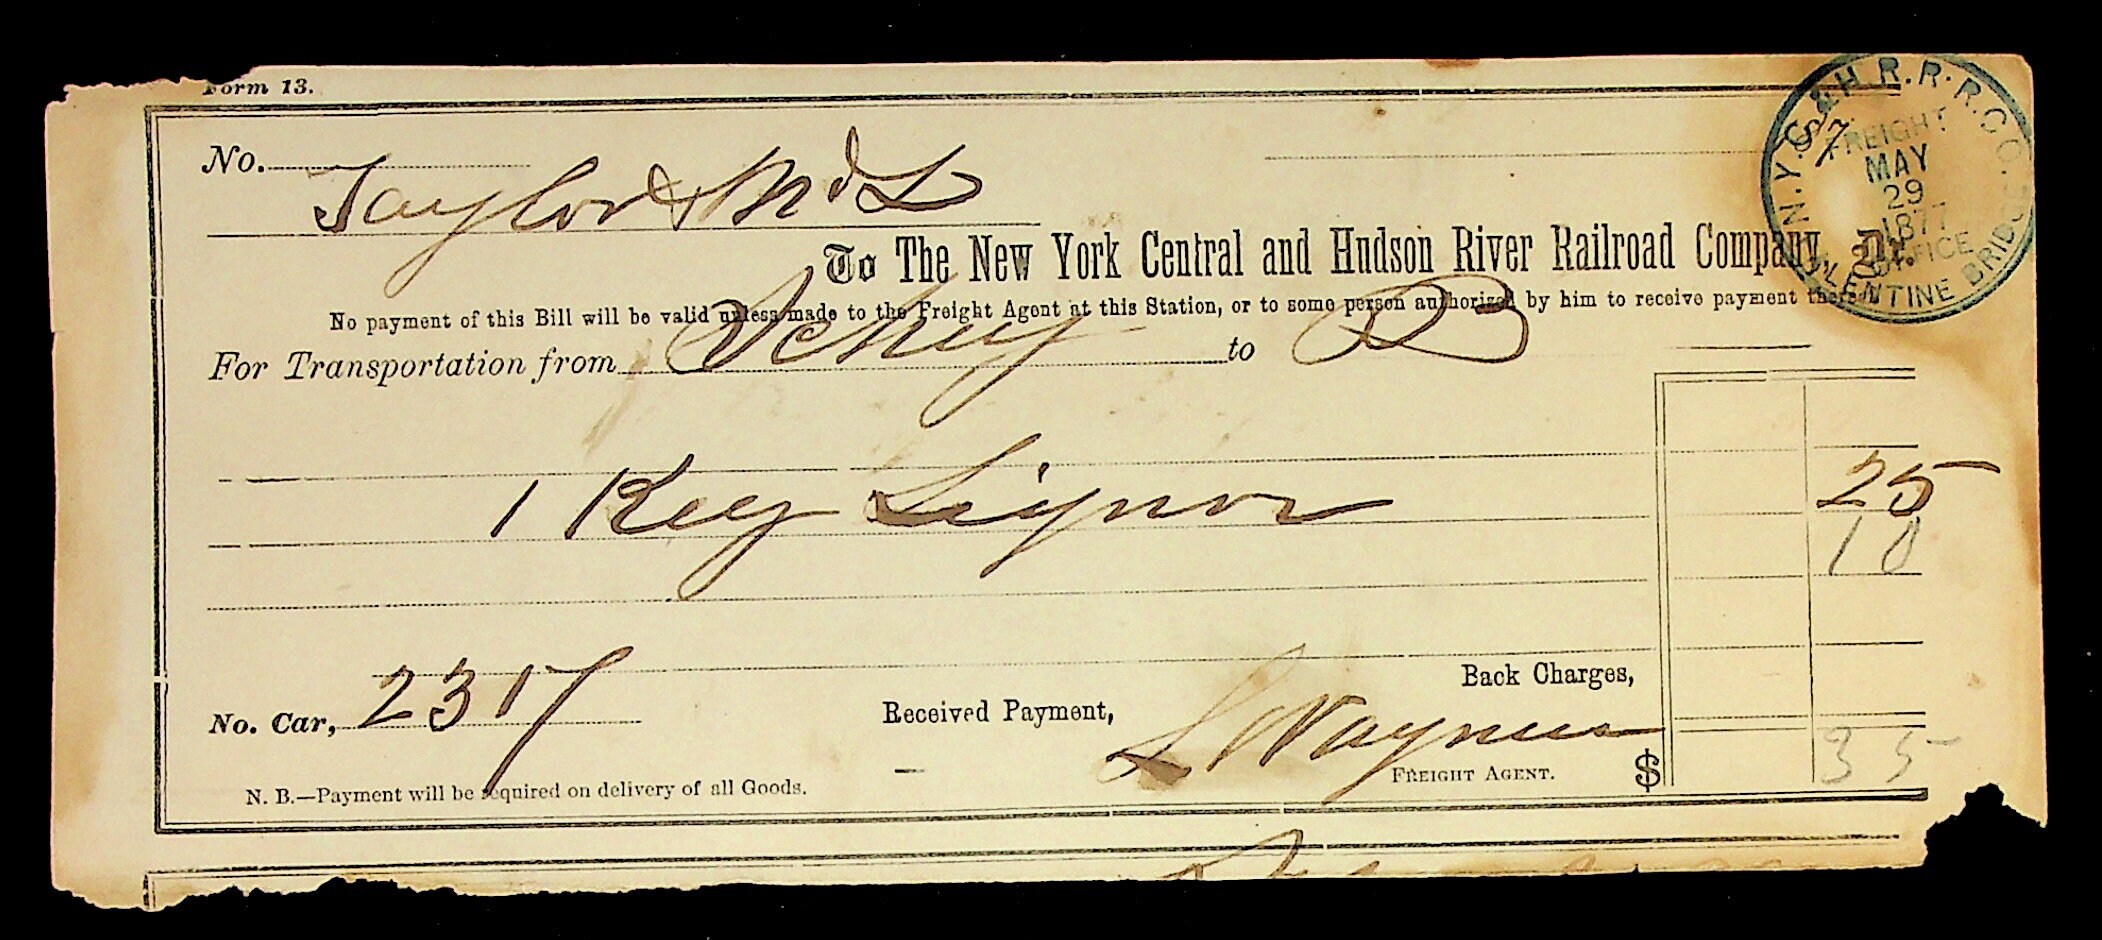 Form 13.
No.
Taylor & McL
N.Y.C. & H.R.R.R.CO.
FREIGHT
MAY
29
1877
OFFICE
PALENTINE BRIDGE
To The New York Central and Hudson River Railroad Company, Dr.
No payment of this Bill will be valid unless made to the Freight Agent at this Station, or to some person authorized by him to receive payment thereof
For Transportation from Schuy to PB
1 Keg Liquor 25
10
Back Charges,
No. Car, 2317 Received Payment, L Waynus
FREIGHT AGENT. $ 35
N. B.—Payment will be required on delivery of all Goods.